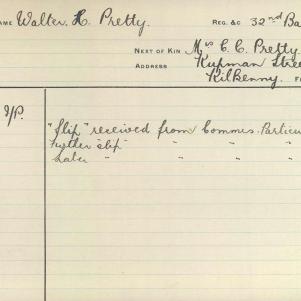 NAME Walter. H. Pretty. REG. &C 32nd Ba
NEXT OF KIN Mrs C. C. Pretty
ADDRESS Kupman Stree
Kilkenny. F
I/P. "Slip" received from Commrs. Particu
Further "slip" " "
Later " " "